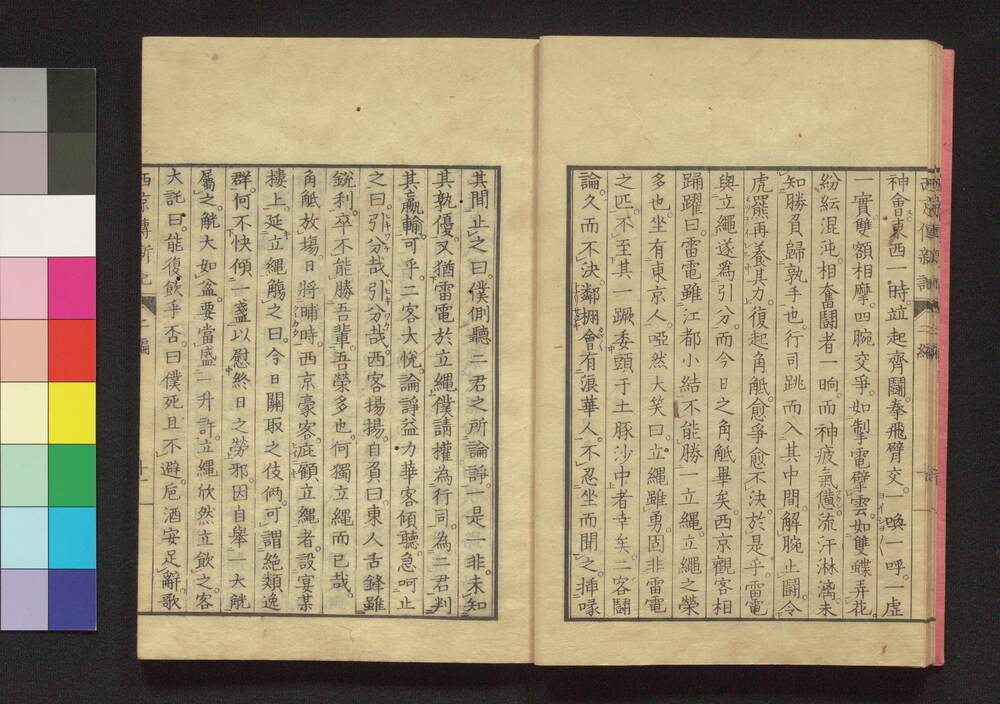 神會東西一時竝起齊鬪拳飛臂交一喚一呼一虛
一實雙額相摩四腕交爭如掣電擘雲如雙蝶弄花
紛紜混沌相奮鬪者一晌而神疲氣憊流汗淋漓未
知勝負歸孰手也行司跳而入其中間解腕止鬪令
虎羆再養其力復起角觝愈爭愈不決於是乎雷電
與立繩遂爲引分而今日之角觝畢矣西京觀客相
踊躍曰雷電雖江都小結不能勝一立繩立繩之榮
多也坐有東京人啞然大笑曰立繩雖勇固非雷電
之匹不至其一蹶委頭于土豚沙中者幸矣二客鬪
論久而不決鄰棚會有浪華人不忍坐而聞之揷喙
其間止之曰僕側聽二君之所論諍一是一非未知
其孰優又猶雷電於立繩僕請權為行司為二君判
其贏輸可乎二客大悅論諍益力華客傾聽急呵止
之曰引分哉引分哉西客揚揚自負曰東人舌鋒雖
銳利卒不能勝吾輩吾榮多也何獨立繩而已哉
角觝放場日將晡時西京豪客庇顧立繩者設宴某
樓上延立繩觴之曰今日關取之伎倆可謂絶類逸
群何不快傾一盞以慰終日之勞邪因自舉一大觥
屬之觥大如盆要當盛一升許立繩欣然立飲之客
大詫曰能復飲乎否曰僕死且不避巵酒安足辭歌
西京傳新記 二編 十一